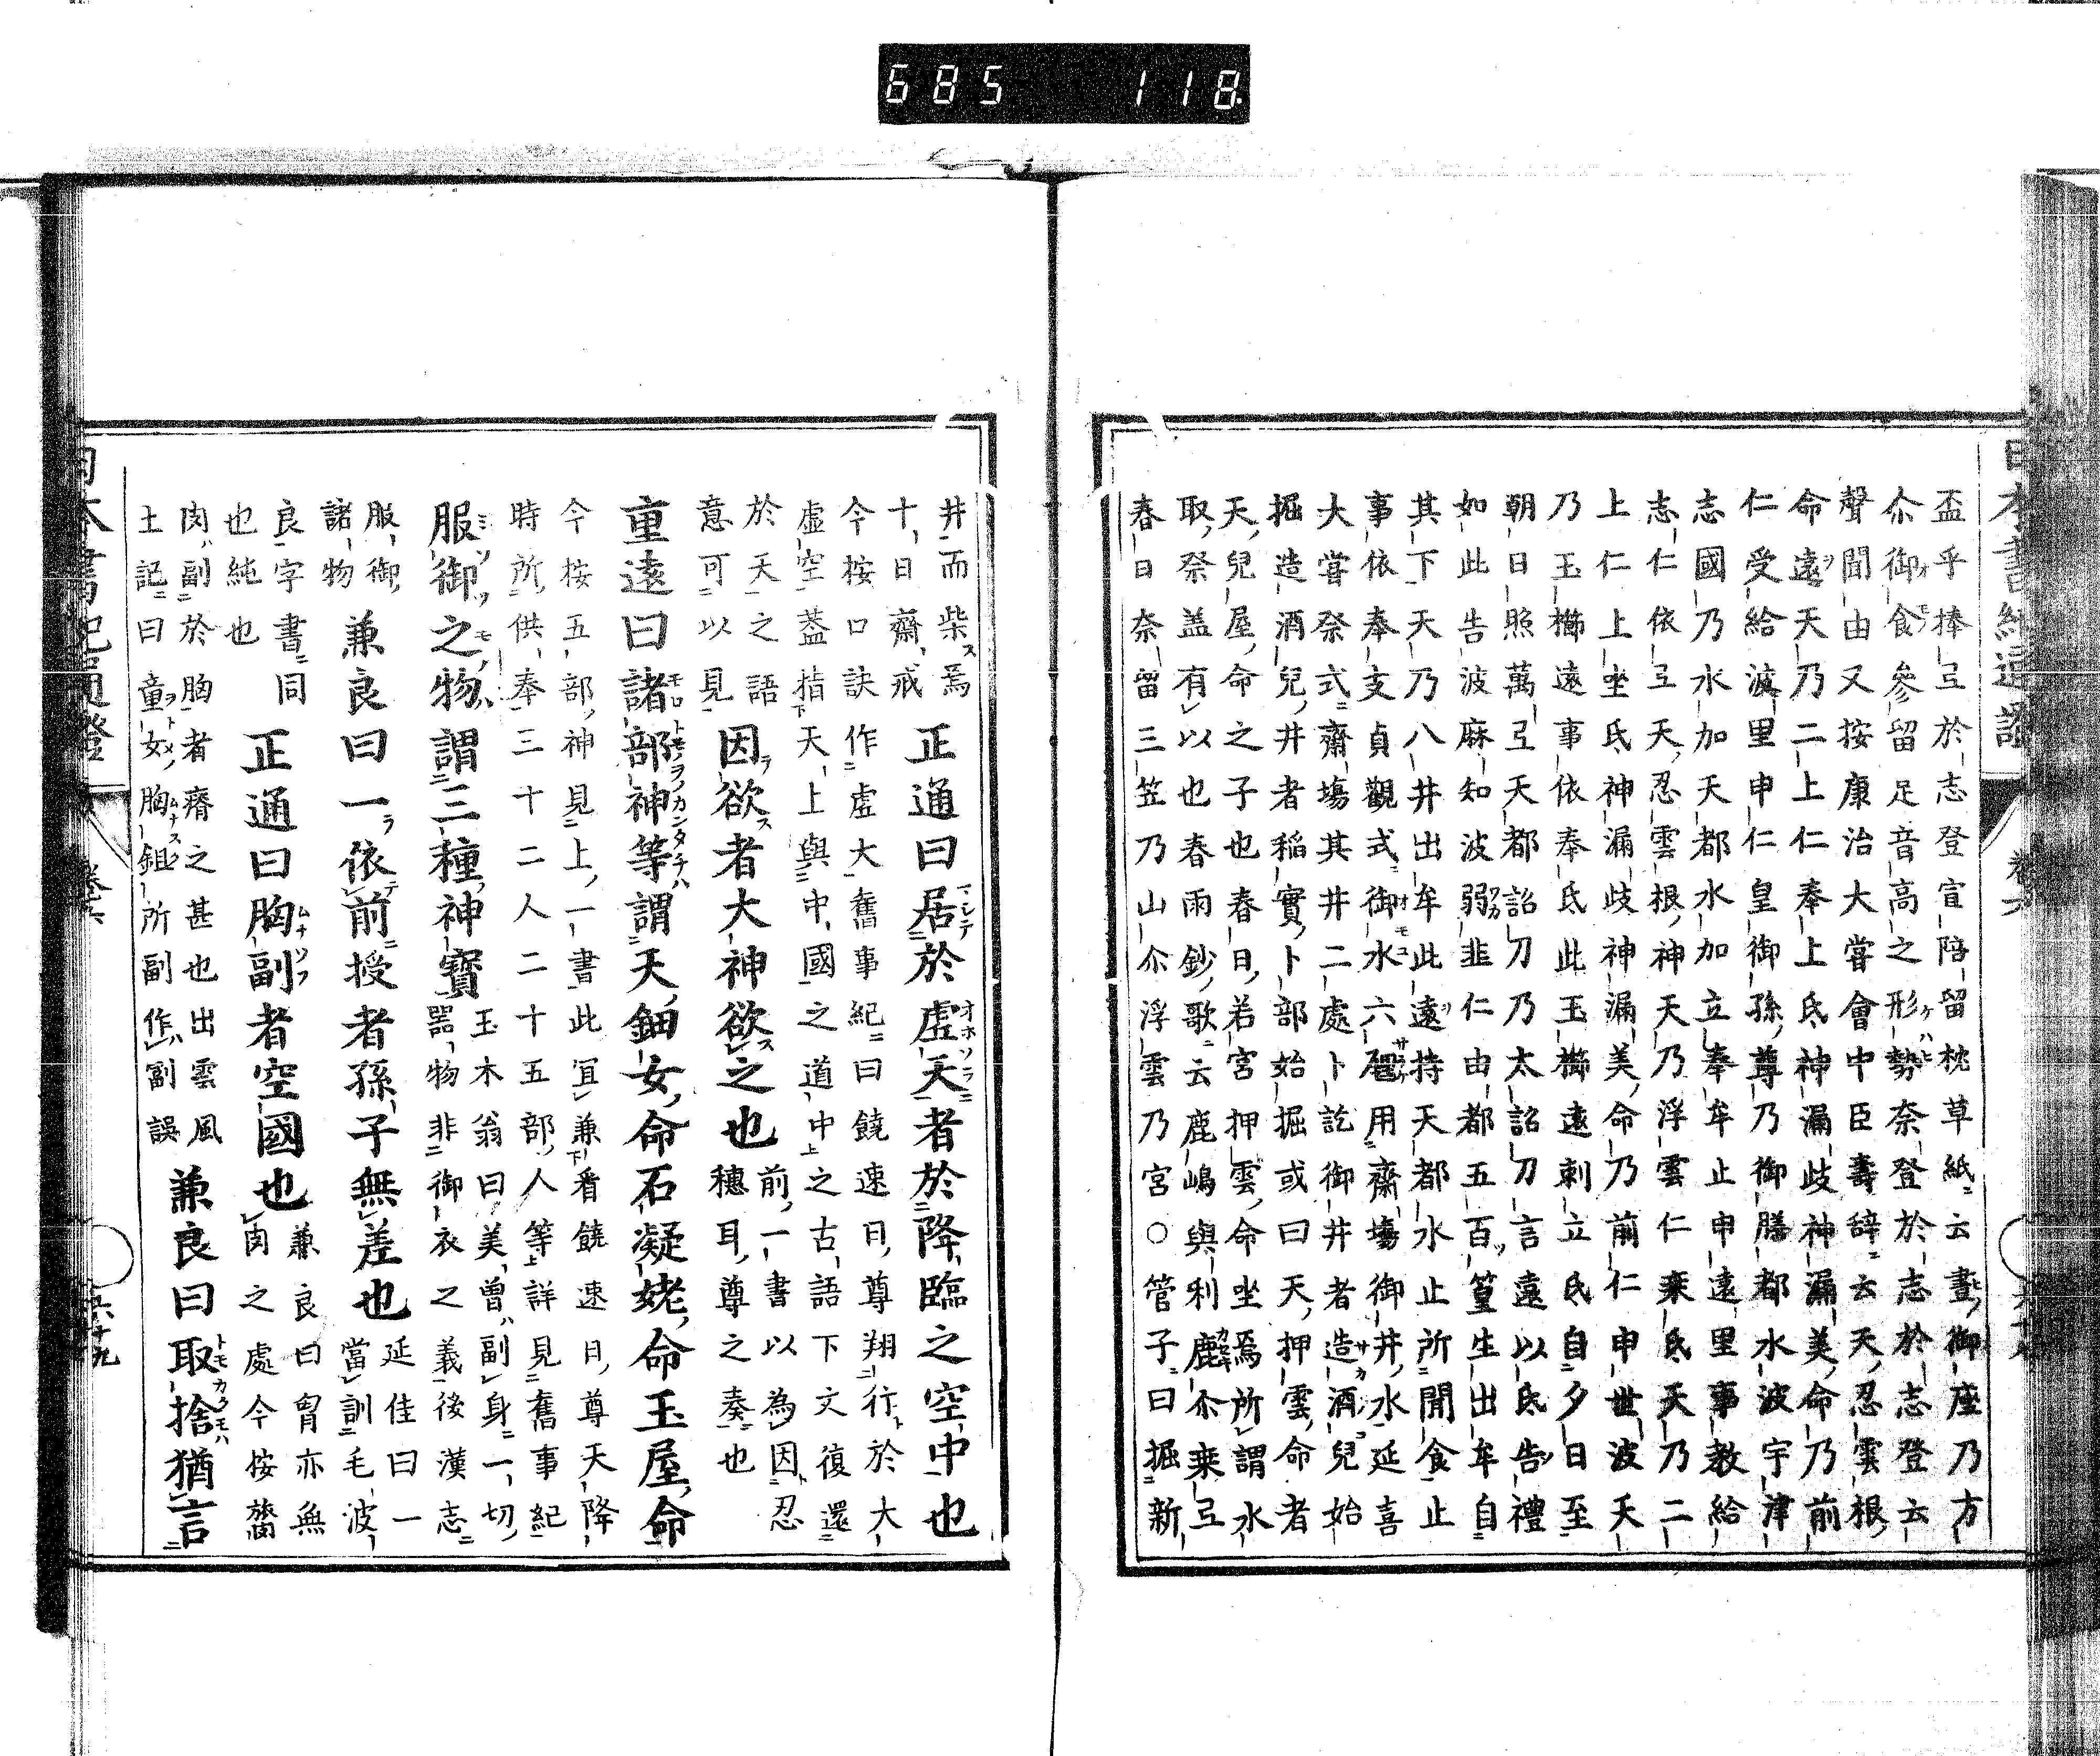 685 118
盃乎捧弖於志登宣陪留枕草紙云晝御座乃方
尒御食參留足音高之形勢奈登於志於志登云
聲聞由又按康治大嘗會中臣壽辞云天忍雲根
命遠天乃二上仁奉上氐神漏岐神漏美命乃前
仁受給波里申仁皇御孫尊乃御膳都水波宇津
志國乃水加天都水加立奉牟止申遠里事教給
志仁依弖天忍雲根神天乃浮雲仁乗氐天乃二
上仁上坐氐神漏岐神漏美命乃前仁申世波天
乃玉櫛遠事依奉氐此玉櫛遠刺立氐自夕日至
朝日照萬弖天都詔刀乃太詔刀言遠以氐告禮
如此告波麻知波弱韭仁由都五百篁生出牟自
其下天乃八井出牟此遠持天都水止所聞食止
事依奉支貞觀式御水六㼜用齋場御井水延喜
大嘗祭式齋塲其井二處卜訖御井者造酒兒始
掘造酒兒井者稲實卜部始掘或曰天押雲命者
天兒屋命之子也春日若宮押雲命坐焉所謂水
取祭盖有以也春雨鈔歌云鹿嶋與利鹿尒乗弖
春日奈留三笠乃山尒浮雲乃宮○管子曰掘新
井而柴焉
十日齋戒
正通曰居於虚天者於降臨之空中也
今按口訣作虚大舊事紀曰饒速日尊翔行於大
虚空蓋指天上與中國之道中之古語下文復還
於天之語
意可以見
因欲者大神欲之也
前一書以為因忍
穗耳尊之奏也
重遠曰諸部神等謂天鈿女命石凝姥命玉屋命
今按五部神見上一書此冝兼看饒速日尊天降
時所供奉三十二人二十五部人等詳見舊事紀
服御之物謂三種神寶
玉木翁曰美曾副身一切
器物非御衣之義後漢志
服御
諸物
兼良曰一依前授者孫子無差也
延佳曰一
當訓毛波
良字書同
也純也
正通曰胸副者空國也
兼良曰胷亦無
肉之處今按膂
肉副於胸者膂之甚也出雲風
土記曰童女胸鉏所副作副誤
兼良曰取捨猶言
日本書紀通證
卷六
六十九